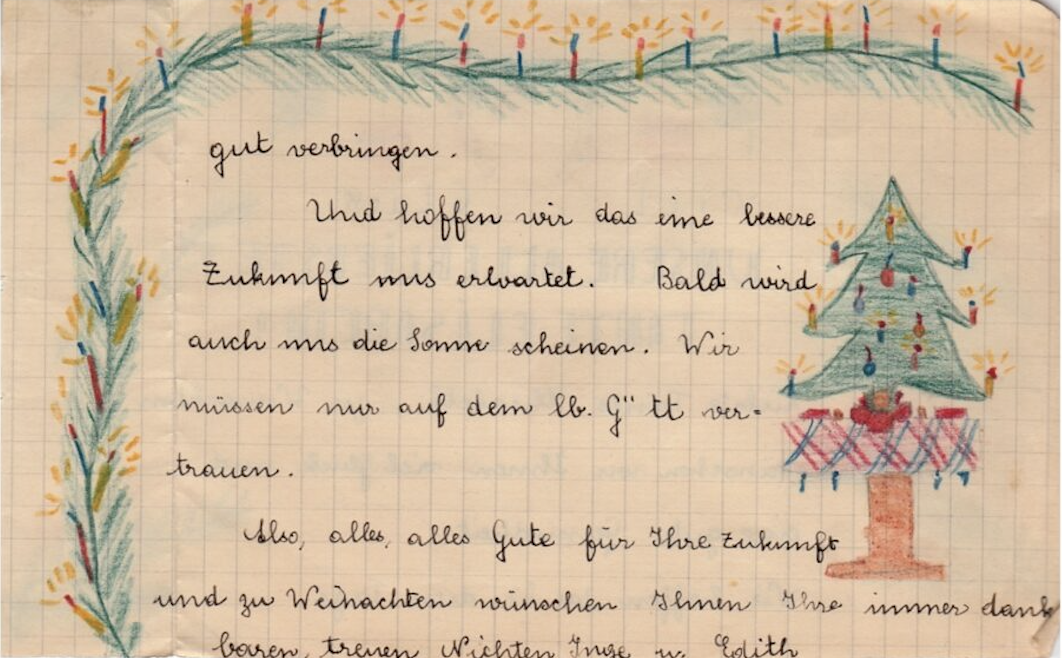 gut verbringen.
Und hoffen wir das eine bessere
Zukunft uns erwartet. Bald wird
auch uns die Sonne scheinen. Wir
müssen nur auf dem lb. G"tt ver=
trauen.
Also, alles, alles Gute für Ihre Zukunft
und zu Weihnachten wünschen Ihnen Ihre immer dank
baren, treuen Nichten Inge u. Edith